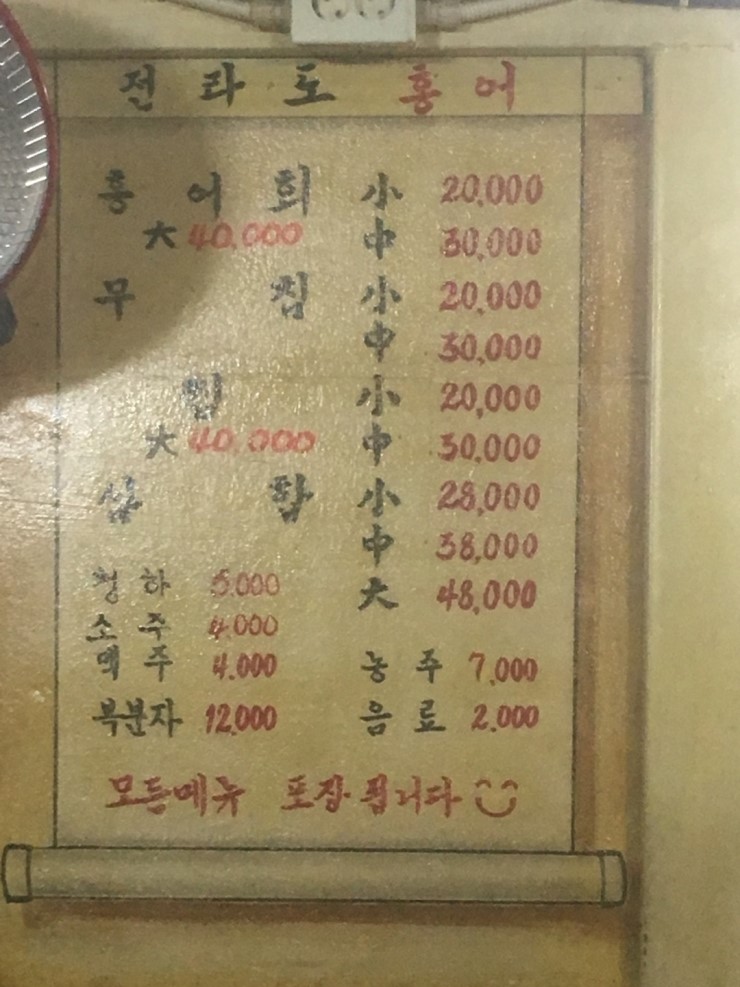 전라도 홍어
홍어회 小 20,000
大 40,000 中 30,000
무침 小 20,000
中 30,000
찜 小 20,000
大 40,000 中 30,000
삼합 小 28,000
中 38,000
청하 5,000 大 48,000
소주 4,000
맥주 4,000 농주 7,000
복분자 12,000 음료 2,000
모든메뉴 포장됩니다